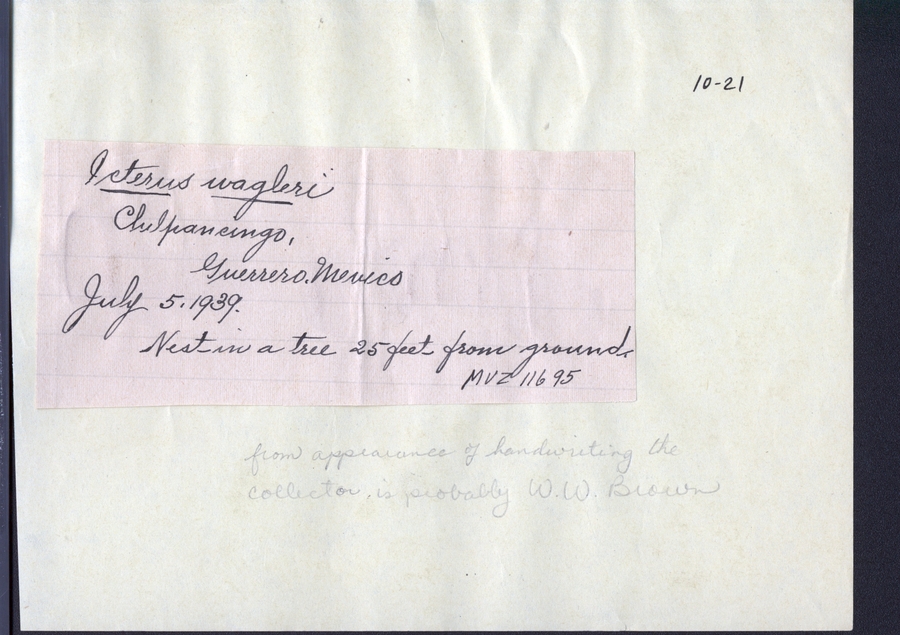 10-21
Icterus wagleri
Chilpancingo,
Guerrero. Mexico
July 5. 1939.
Nest in a tree 25 feet from ground.
MVZ 11695
from appearance of handwriting the
collector is probably W.W. Brown